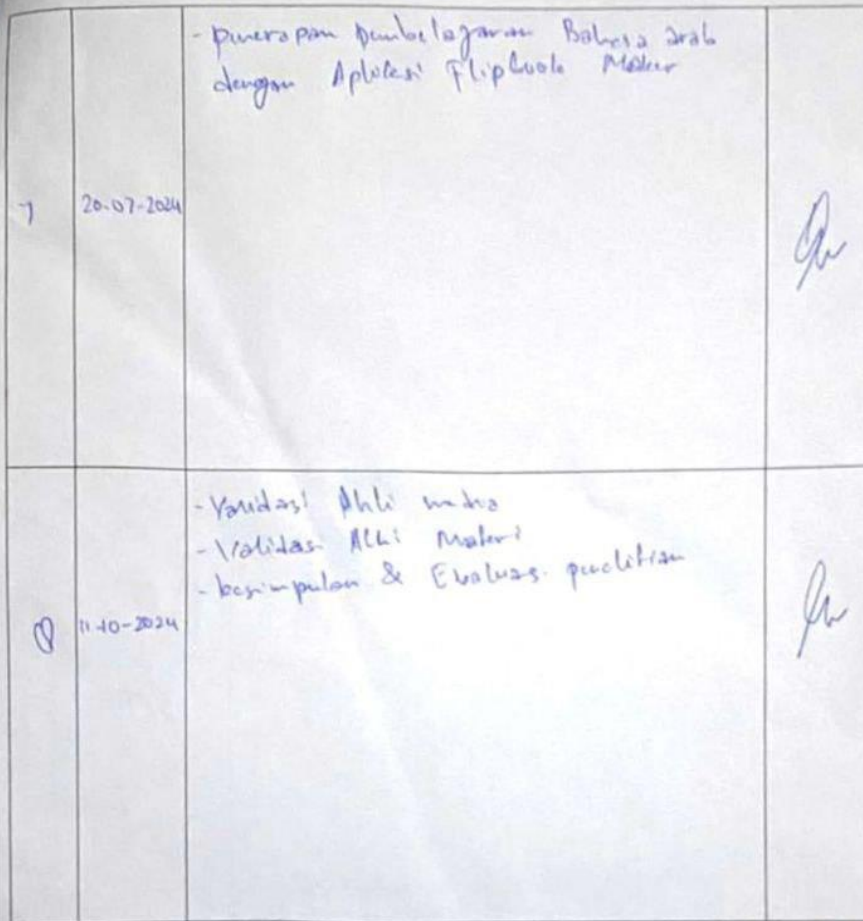 - penerapan pembelajaran Bahasa arab
dengan Aplikasi Flipbook Maker
7
20-07-2024
- Validasi Ahli media
- Validasi Ahli Materi
- kesimpulan & Evaluasi penelitian
8
11-10-2024